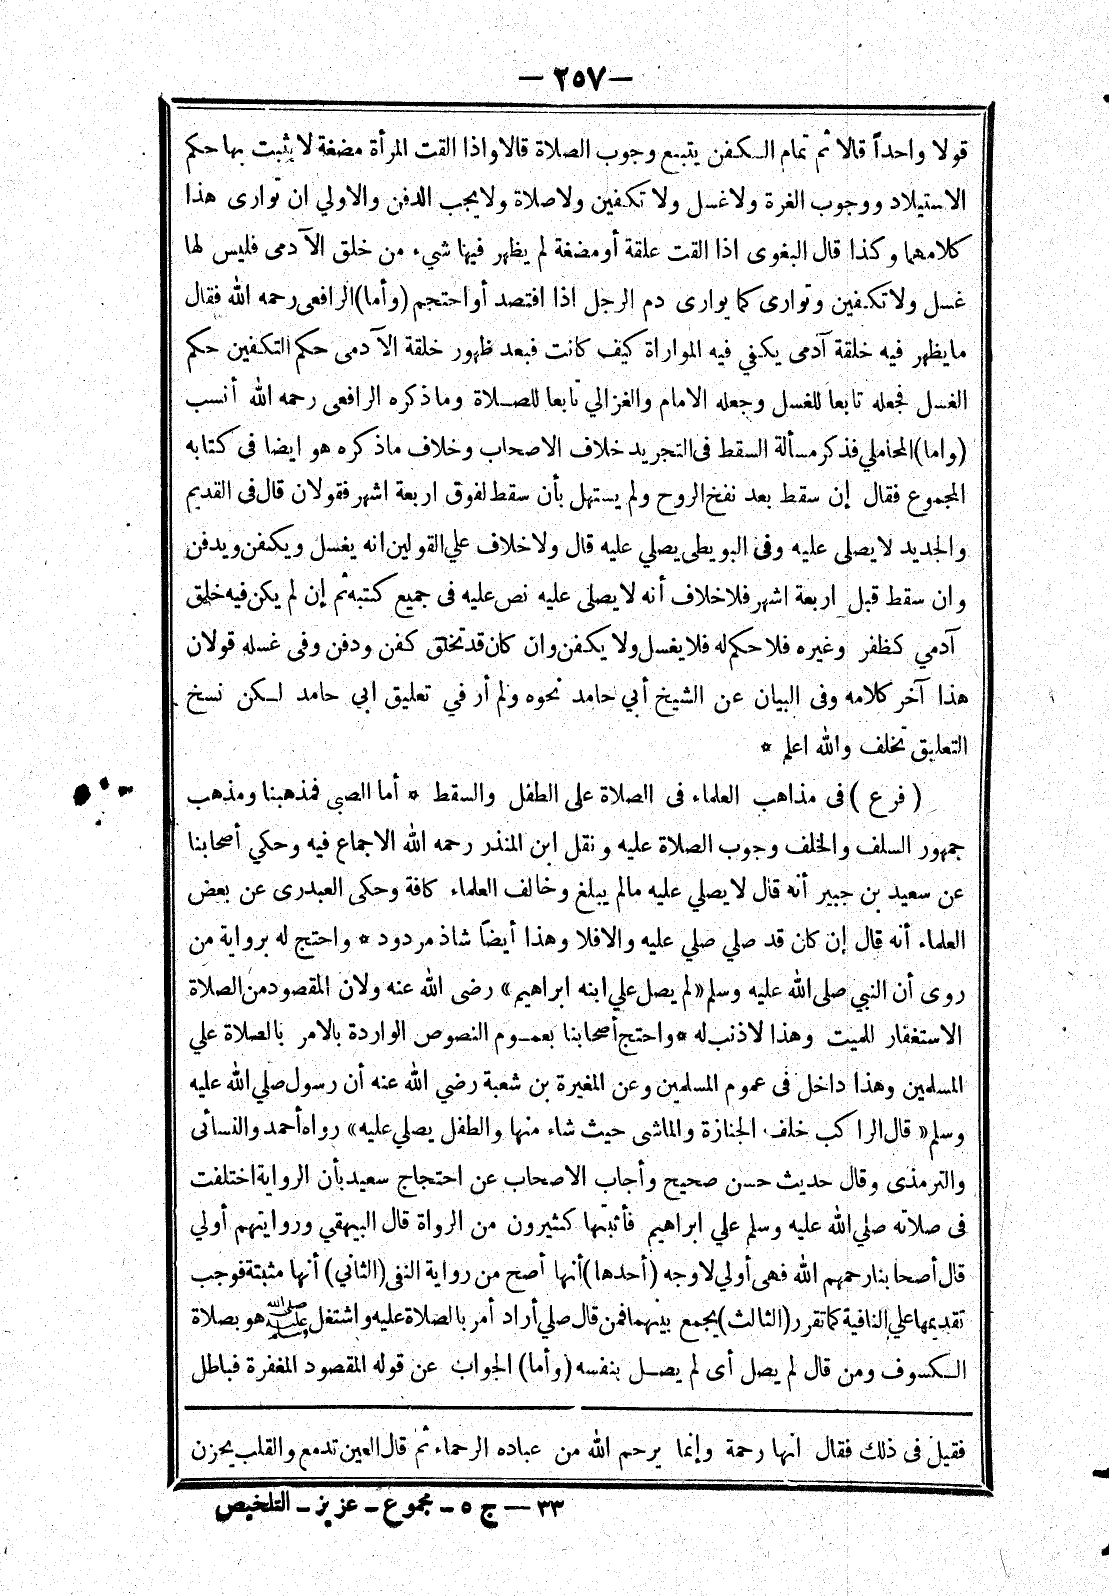 — ٢٥٧ —
قولا واحداً قالا ثم تمام الكفن يتبع وجوب الصلاة قالا واذا القت المرأة مضغة لا يثبت بها حكم
الاستيلاد ووجوب الغرة ولا غسل ولا تكفين ولا صلاة ولا يجب الدفن والاولي ان توارى هذا
كلامهما وكذا قال البغوى اذا القت علقة أو مضغة لم يظهر فيها شيء من خلق الآدمى فليس لها
غسل ولا تكفين وتوارى كما يوارى دم الرجل اذا افتصد أو احتجم (وأما) الرافعى رحمه الله فقال
ما يظهر فيه خلقة آدمى يكفي فيه المواراة كيف كانت فبعد ظهور خلقة الآدمى حكم التكفين حكم
الغسل فجعله تابعا للغسل وجعله الامام والغزالي تابعا للصلاة وما ذكره الرافعى رحمه الله أنسب
(واما) المحاملي فذكر مسألة السقط فى التجريد خلاف الاصحاب وخلاف ما ذكره هو ايضا فى كتابه
المجموع فقال إن سقط بعد نفخ الروح ولم يستهل بأن سقط لفوق اربعة اشهر فقولان قال فى القديم
والجديد لا يصلى عليه وفى البويطى يصلي عليه قال ولا خلاف علي القولين انه يغسل ويكفن ويدفن
وان سقط قبل اربعة اشهر فلا خلاف أنه لا يصلى عليه نص عليه فى جميع كتبه ثم إن لم يكن فيه خلق
آدمي كظفر وغيره فلا حكم له فلا يغسل ولا يكفن وان كان قد تخلق كفن ودفن وفى غسله قولان
هذا آخر كلامه وفى البيان عن الشيخ أبي حامد نحوه ولم أر في تعليق ابي حامد لكن نسخ
التعليق تختلف والله اعلم *
(فرع) فى مذاهب العلماء فى الصلاة على الطفل والسقط * أما الصبى فمذهبنا ومذهب
جمهور السلف والخلف وجوب الصلاة عليه ونقل ابن المنذر رحمه الله الاجماع فيه وحكي أصحابنا
عن سعيد بن جبير أنه قال لا يصلي عليه مالم يبلغ وخالف العلماء كافة وحكى العبدرى عن بعض
العلماء أنه قال إن كان قد صلي صلي عليه والا فلا وهذا أيضاً شاذ مردود * واحتج له برواية من
روى أن النبي صلى الله عليه وسلم «لم يصل علي ابنه ابراهيم» رضى الله عنه ولان المقصود من الصلاة
الاستغفار للميت وهذا لا ذنب له * واحتج أصحابنا بعموم النصوص الواردة بالامر بالصلاة علي
المسلمين وهذا داخل فى عموم المسلمين وعن المغيرة بن شعبة رضي الله عنه أن رسول صلي الله عليه
وسلم «قال الراكب خلف الجنازة والماشى حيث شاء منها والطفل يصلي عليه» رواه أحمد والنسائى
والترمذى وقال حديث حسن صحيح وأجاب الاصحاب عن احتجاج سعيد بأن الرواية اختلفت
فى صلاته صلي الله عليه وسلم علي ابراهيم فأثبتها كثيرون من الرواة قال البيهقي وروايتهم أولي
قال أصحابنا رحمهم الله فهى أولي لاوجه (أحدها) أنها أصح من رواية النفى (الثاني) أنها مثبتة فوجب
تقديمها علي النافية كما تقرر (الثالث) يجمع بينهما فمن قال صلي أراد أمر بالصلاة عليه واشتغل صلى الله عليه وسلم هو بصلاة
الكسوف ومن قال لم يصل أى لم يصل بنفسه (وأما) الجواب عن قوله المقصود المغفرة فباطل
فقيل فى ذلك فقال انها رحمة وإنما يرحم الله من عباده الرحماء ثم قال العين تدمع والقلب يحزن
٣٣ — ج ٥ - مجموع - عزيز - التلخيص